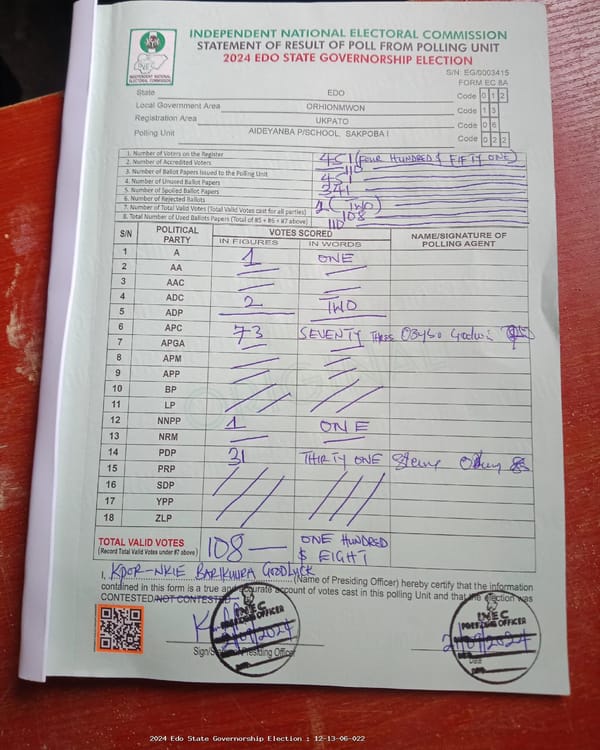 INDEPENDENT NATIONAL ELECTORAL COMMISSION
STATEMENT OF RESULT OF POLL FROM POLLING UNIT
2024 EDO STATE GOVERNORSHIP ELECTION
INEC
INDEPENDENT NATIONAL ELECTORAL COMMISSION
S/N: EG/0003415
FORM EC 8A
State EDO Code 0 1 2
Local Government Area ORHIONMWON Code 1 3
Registration Area UKPATO Code 0 6
Polling Unit AIDEYANBA P/SCHOOL, SAKPOBA I Code 0 2 2
1. Number of Voters on the Register 451 (FOUR HUNDRED & FIFTY ONE)
2. Number of Accredited Voters 110
3. Number of Ballot Papers Issued to the Polling Unit 451
4. Number of Unused Ballot Papers 341
5. Number of Spoiled Ballot Papers
6. Number of Rejected Ballots 2 (TWO)
7. Number of Total Valid Votes (Total Valid Votes cast for all parties) 108
8. Total Number of Used Ballots Papers (Total of #5 + #6 + #7 above) 110
S/N POLITICAL PARTY VOTES SCORED NAME/SIGNATURE OF POLLING AGENT
IN FIGURES IN WORDS
1 A 1 ONE
2 AA
3 AAC
4 ADC 2 TWO
5 ADP
6 APC 73 SEVENTY THREE Godwin
7 APGA
8 APM
9 APP
10 BP
11 LP
12 NNPP 1 ONE
13 NRM
14 PDP 31 THIRTY ONE
15 PRP
16 SDP
17 YPP
18 ZLP
TOTAL VALID VOTES 108 ONE HUNDRED
(Record Total Valid Votes under #7 above) & EIGHT
I, KPOR-NKIE BARIKUURA GOODLUCK (Name of Presiding Officer) hereby certify that the information
contained in this form is a true and accurate account of votes cast in this polling Unit and that the election was
CONTESTED/NOT CONTESTED
INEC
PRESIDING OFFICER
21/09/2024
Presiding Officer
INEC
PRESIDING OFFICER
21/09/2024
Date
2024 Edo State Governorship Election : 12-13-06-022